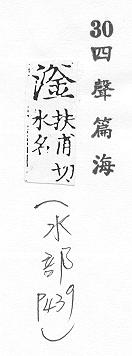 30四聲篇海
滏
扶甫切
水名
(水部
P439)